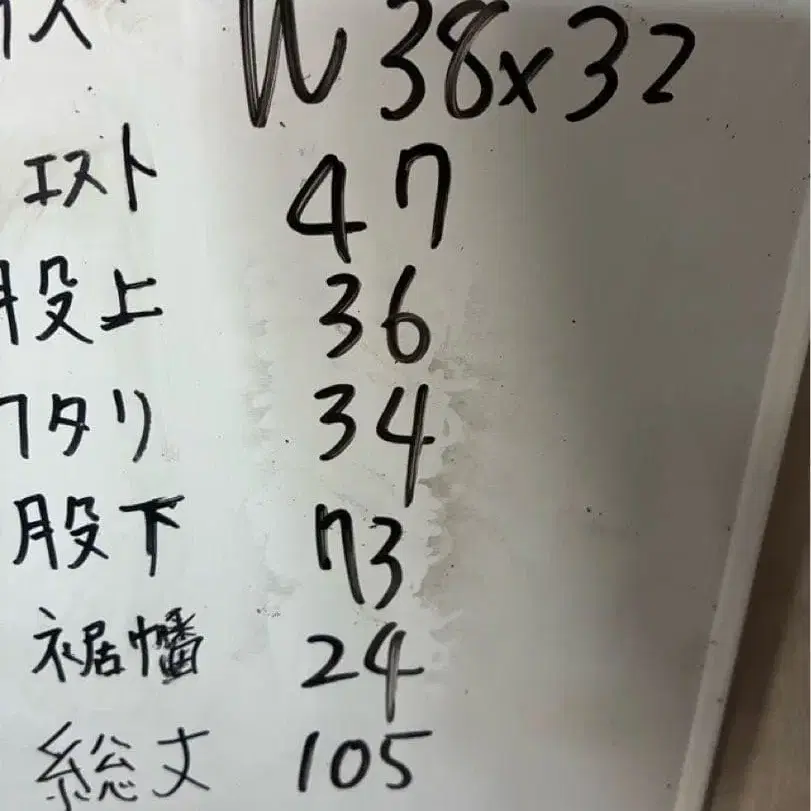 イズ W38×32
エスト 47
股上 36
ワタリ 34
股下 73
裾幅 24
総丈 105